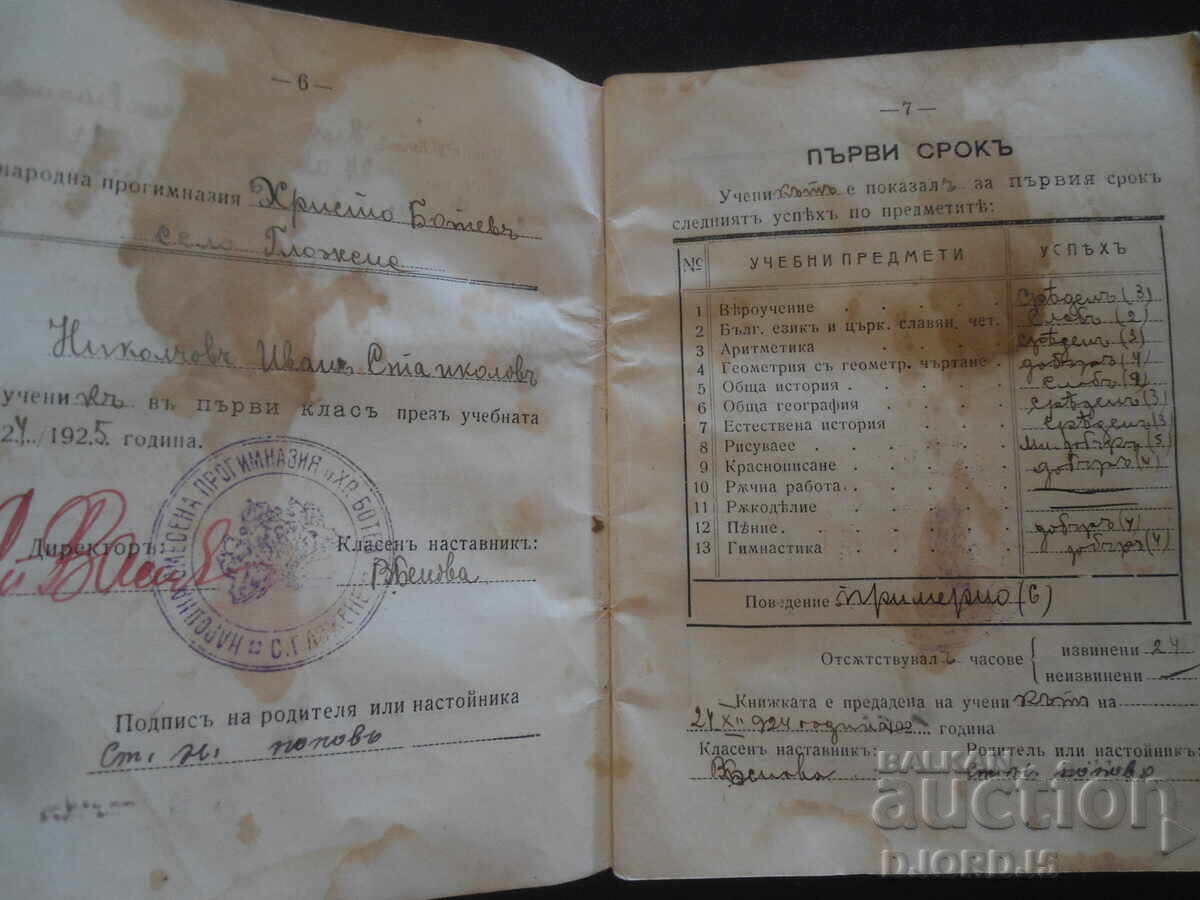 —6—
народна прогимназия Христо Ботевъ
село Гложене
Николчовъ Иванъ Станколовъ
учени къ въ първи класъ презъ учебната
24/1925 година.
НАРОДНА СМЕСЕНА ПРОГИМНАЗИЯ „ХР. БОТЕВ
Директоръ:
Класенъ наставникъ:
Подпись на родителя или настойника
Ст. Н. поповъ
—7—
ПЪРВИ СРОКЪ
Учени кътъ е показалъ за първия срокъ
следниятъ успѣхъ по предметитѣ:
№ УЧЕБНИ ПРЕДМЕТИ УСПѢХЪ
1 Вѣроучение . . . . срѣденъ (3)
2 Бълг. езикъ и църк. славян. чет. слабъ (2)
3 Аритметика . . . . срѣденъ (3)
4 Геометрия съ геометр. чъртане . добъръ (4)
5 Обща история . . . . . слабъ (2)
6 Обща география . . . . срѣденъ (3)
7 Естествена история . . . срѣденъ (3
8 Рисуваее . . . . . . мн. добъръ (5)
9 Краснописане . . . . . добъръ (4)
10 Рѫчна работа . . . . .
11 Рѫкоделие . . . . .
12 Пѣние . . . . . . добъръ (4)
13 Гимнастика . . . . . добъръ (4)
Поведение примерно (6)
Отсѫтствувалъ часове { извинени 24
неизвинени
Книжката е предадена на учени кътъ на
24 XII 924 година
Класенъ наставникъ: Родитель или настойникъ:
Ст. Н. поповъ
BALKAN
auction
DJORDJ5